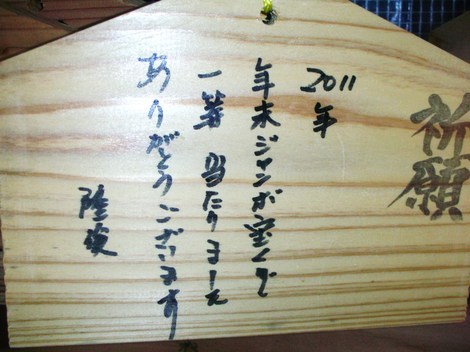 祈願
2011年
年末ジャンボ宝くじ
一等 当たりました
ありがとうございます